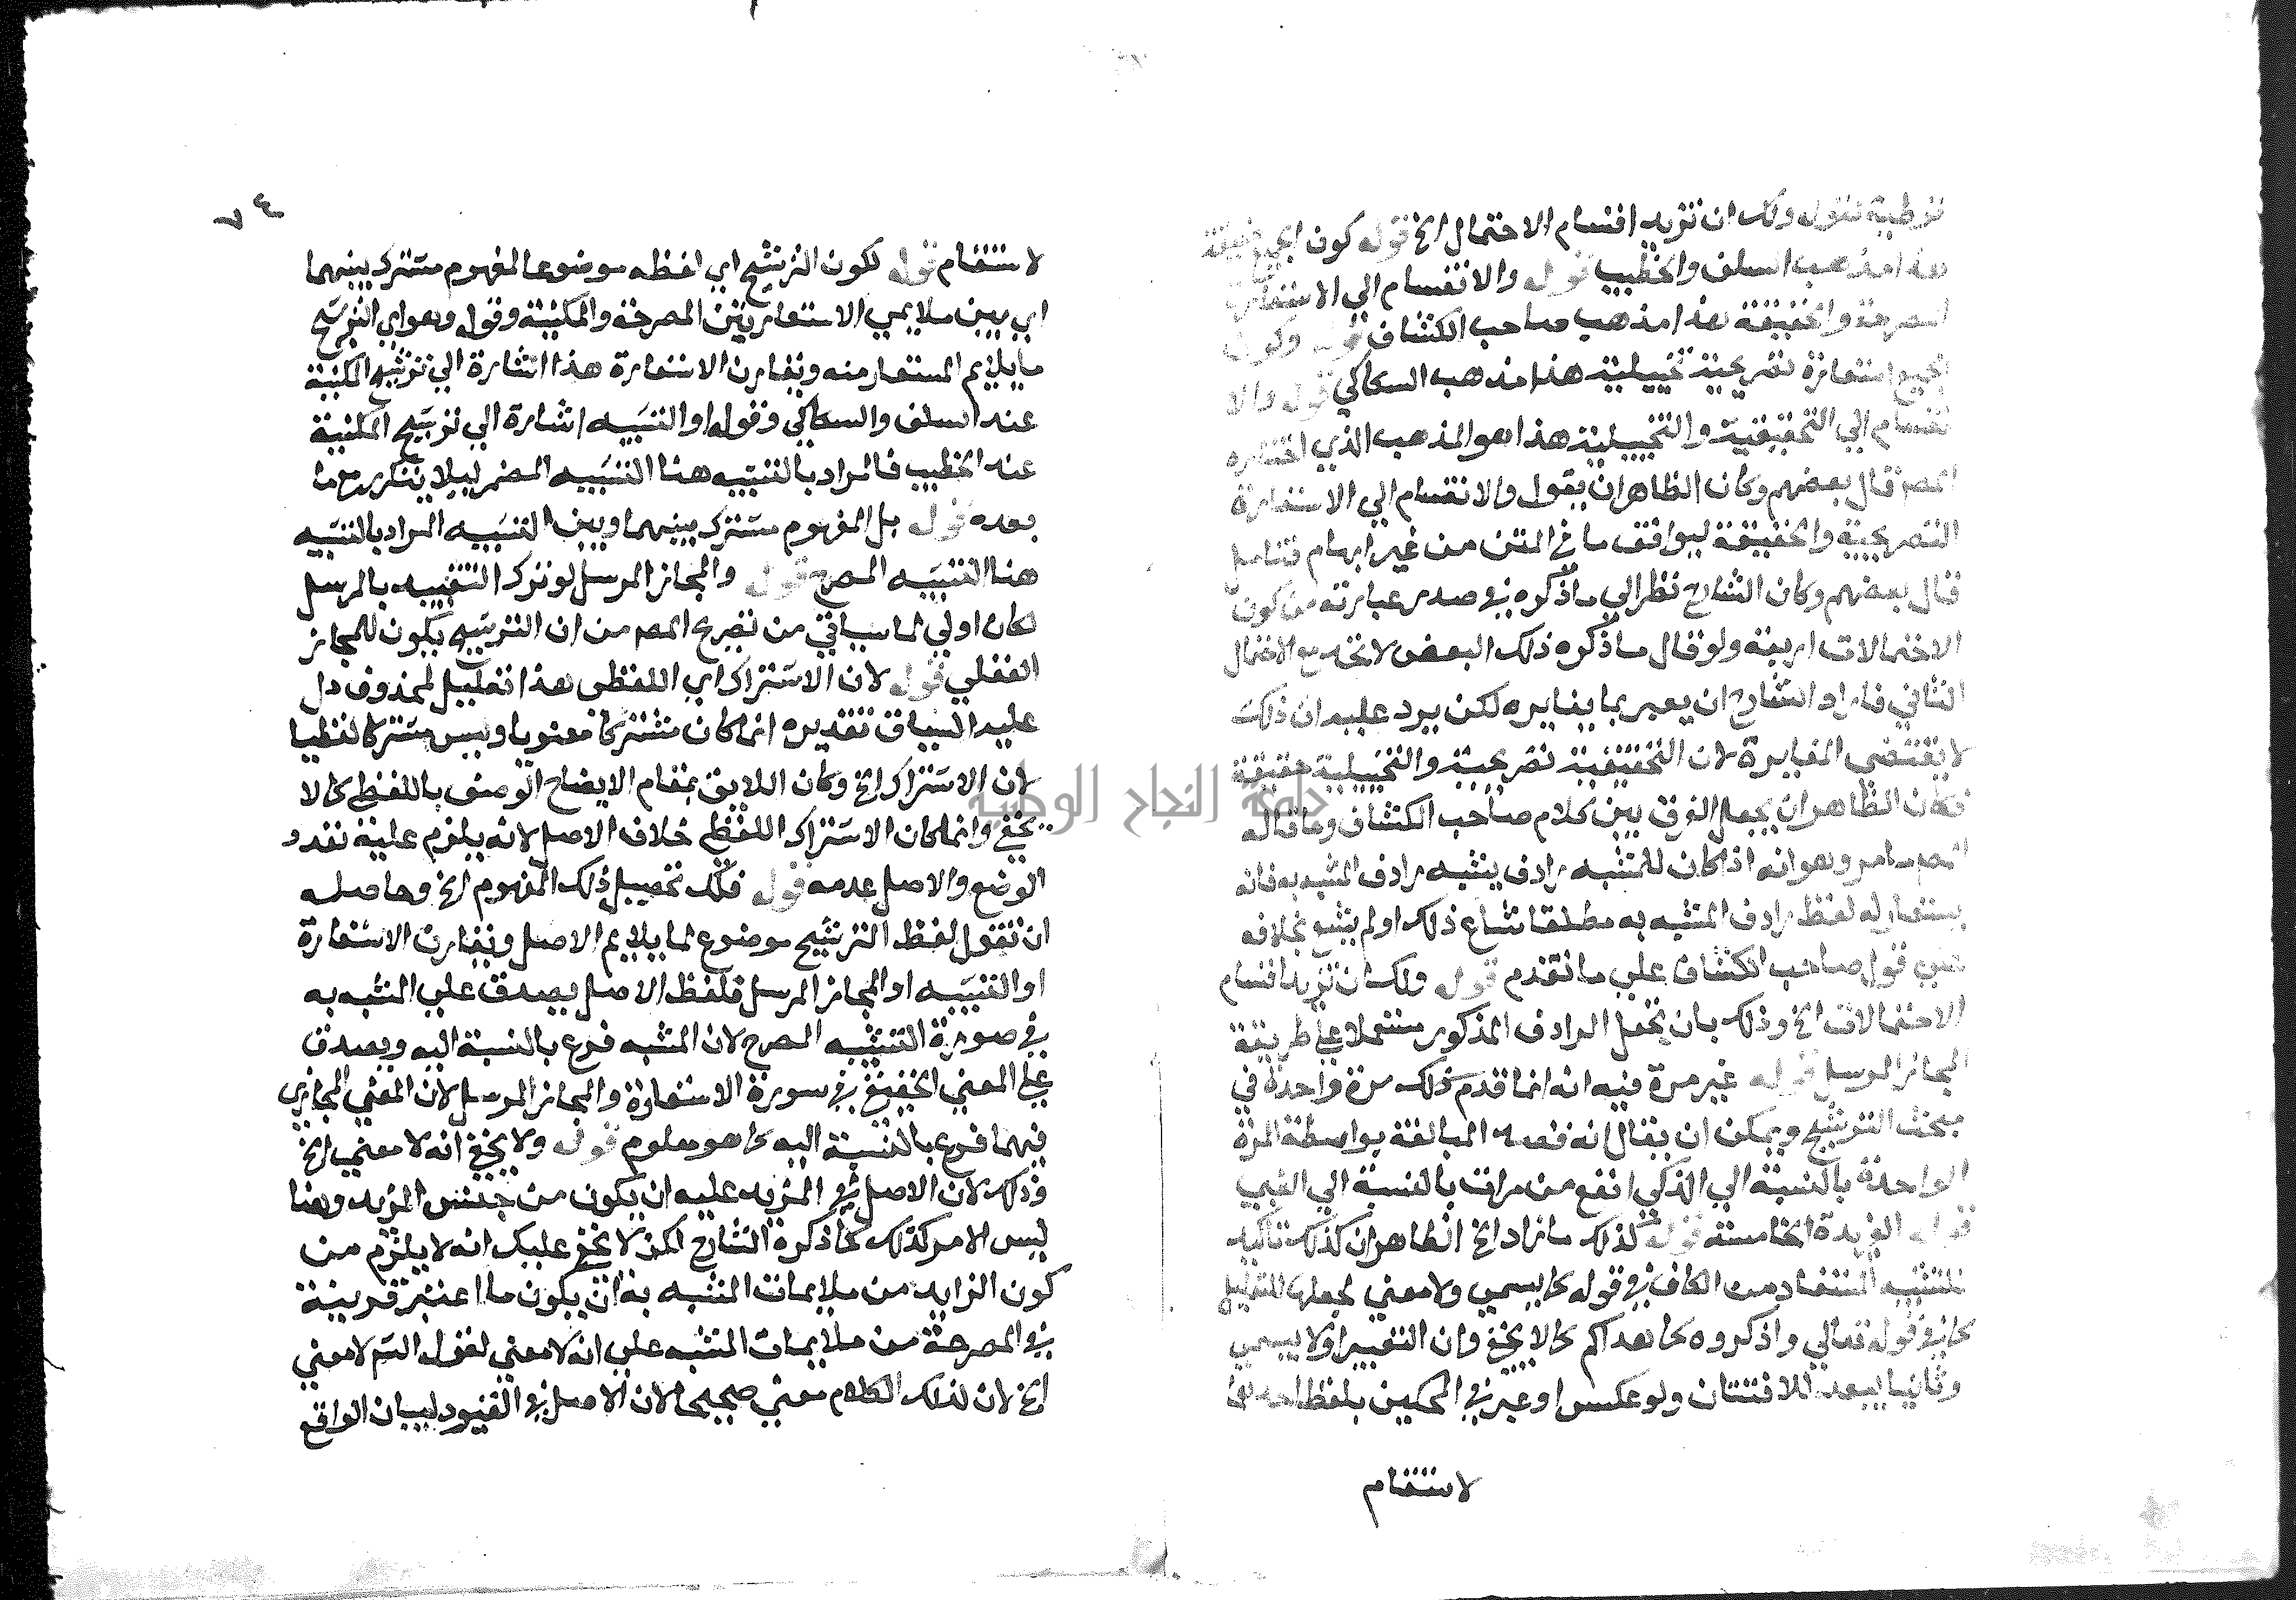 توطية لقوله ولك ان تزيد اقسام الاحتمال الخ قوله كون اي حقيقة
هذا مذهب السلف والخطيب قوله والانقسام الي الاستعارة
المصرحة والحقيقة هذا مذهب صاحب الكشاف قوله وكون
الجميع استعارة تصريحية تخييلية هذا مذهب السكاكي قوله والا
نقسام الي التحقيقية والتخييلية هذا هو المذهب الذي اختاره
المصم قال بعضهم وكان الظاهر ان يقول والانقسام الي الاستعارة
التصريحية والحقيقة ليوافق ما في المتن من غير ابهام فتامل
قال بعضهم وكان الشارح نظر الي ما ذكره في صدر عبارته من كون
الاحتمالات اربعة ولو قال ما ذكره ذلك البعض لاتحد مع الاحتمال
الثاني فاراد الشارح ان يعبر بما يغايره لكن يرد عليه ان ذلك
لا يقتضي المغايرة لان التحقيقية تصريحية والتخييلية حقيقة
فكان الظاهر ان يجعل الفرق بين كلام صاحب الكشاف وما قاله
المصم مامر وهو انه اذا كان للمشبه رادف يشبه رادف المشبه به فانه
يستعار له لفظ رادف المشبه به مطلقا شاع ذلك او لم يشع بخلافه
علي قول صاحب الكشاف علي ما تقدم قوله ولك ان تزيد اقسام
الاحتمالات الخ وذلك بان تجعل الرادف المذكور مستعملا علي طريقة
المجاز المرسل قوله غير مرة فيه انه انما قدم ذلك مرة واحدة في
مبحث الترشيح ويمكن ان يقال انه قصد المبالغة بواسطة المرة
الواحدة بالنسبة الي الذكي انفع من مرات بالنسبة الي الغبي
قوله الفريدة الخامسة قوله كذلك ما زاد الخ الظاهر ان كذلك تاكيد
للتشبيه المستفاد من الكاف في قوله كما يسمي ولا معني لجعلها للتعليل
كما في قوله تعالي واذكروه كما هداكم كما لا يخفي وان التعبير اولا بيسمي
وثانيا بيعد للافتنان ولو عكس او عبر في المحكين بلفظ احدهما
لاستقام
جامعة النجاح الوطنية
٧٤
لاستقام قوله لكون الترشيح اي لفظه موضوعا لمفهوم مشترك بينهما
اي بين ملايمي الاستعارتين المصرحة والمكنية وقوله وهو اي الترشيح
ما يلايم المستعار منه ويقارن الاستعارة هذا اشارة الي ترشيح المكنية
عند السلف والسكاكي وقوله او التشبيه اشارة الي ترشيح المكنية
عند الخطيب فالمراد بالتشبيه هنا التشبيه المضمر ليلا يتكرر مع ما
بعده قوله بل المفهوم مشترك بينهما وبين التشبيه المراد بالتشبيه
هنا التشبيه المصرح قوله والمجاز المرسل لو ترك التقييد بالمرسل
لكان اولي لما سياتي من تصريح المصم من ان الترشيح يكون للمجاز
العقلي قوله لان الاشتراك اي اللفظي هذا تعليل لمحذوف دل
عليه السياق تقديره انما كان مشتركا معنويا وليس مشتركا لفظيا
لان الاشتراك الخ وكان اللايق بمقام الايضاح الوصف باللفظي كما لا
يخفي وانما كان الاشتراك اللفظي خلاف الاصل لانه يلزم عليه تعدد
الوضع والاصل عدمه قوله فلك تحصيل ذلك المفهوم الخ وحاصله
ان تقول لفظ الترشيح موضوع لما يلايم الاصل ويقارن الاستعارة
او التشبيه او المجاز المرسل فلفظ الاصل يصدق علي المشبه به
في صورة التشبيه المصرح لان المشبه فرع بالنسبة اليه ويصدق
علي المعني الحقيقي في سورة الاستعارة والمجاز المرسل لان المعني المجازي
فيهما فرع بالنسبة اليه كما هو معلوم قوله ولا يخفي انه لا معني الخ
وذلك لان الاصل في المزيد عليه ان يكون من جنس المزيد وهنا
ليس الامر كذلك كما ذكره الشارح لكن لا يخفي عليك انه لا يلزم من
كون الزايد من ملايمات المشبه به ان يكون ما اعتبر قرينة
في المصرحة من ملايمات المشبه علي انه لا معني لقول الشم لا معني
الخ لان لذلك الكلام معني صحيحا لان الاصل في القيود لبيان الواقع